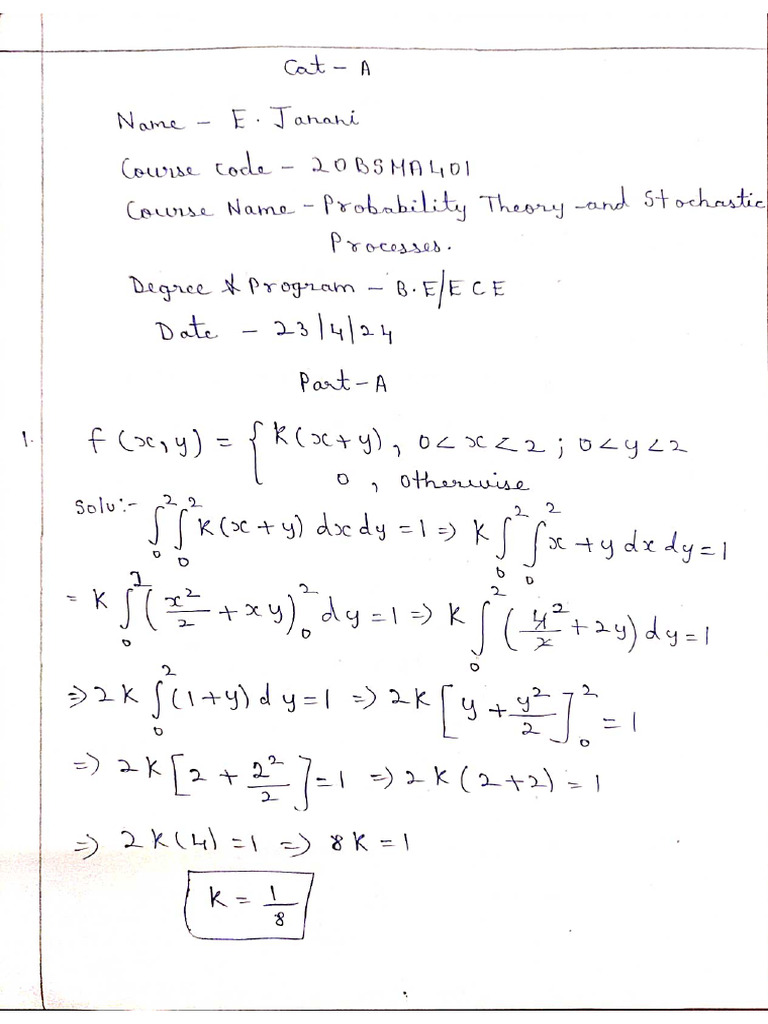 Cat - A
Name - E. Janani
Course code - 20BSMA401
Course Name - Probability Theory and Stochastic
Processes.
Degree & Program - B.E/ECE
Date - 23/4/24
Part-A
1. f(x,y) = { k(x+y), 0<x<2; 0<y<2
0, otherwise
Solu:- ∫₀² ∫₀² k(x+y) dx dy = 1 => k ∫₀² ∫₀² x+y dx dy = 1
= k ∫₀² (x²/2 + xy)₀² dy = 1 => k ∫₀² (4²/2 + 2y) dy = 1
=> 2k ∫₀² (1+y) dy = 1 => 2k [y + y²/2]₀² = 1
=> 2k [2 + 2²/2] = 1 => 2k (2+2) = 1
=> 2k(4) = 1 => 8k = 1
k = 1/8